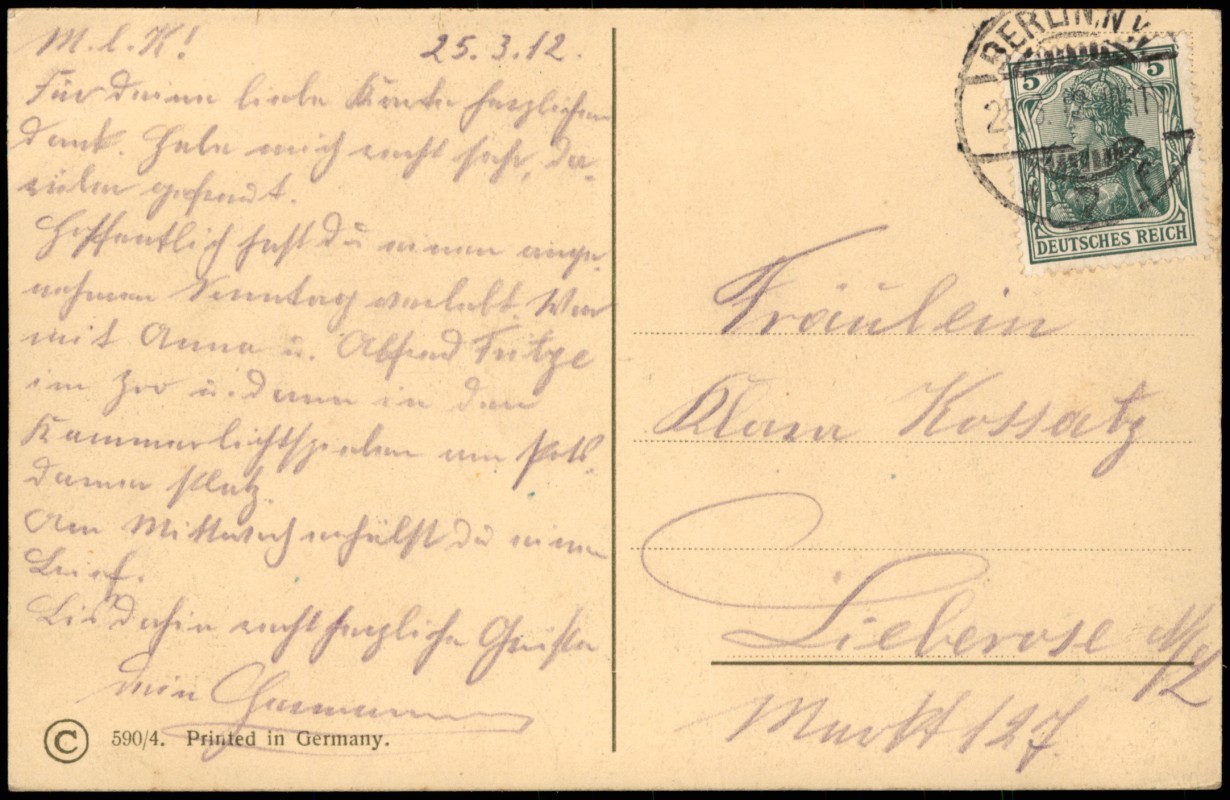 M.l.K! 25.3.12.
Für deine liebe Karte herzlichen
Dank. Habe mich recht sehr, da-
rüber gefreut.
Hoffentlich hast Du einen ange-
nehmen Sonntag verlebt. War
mit Anna u. Alfred Fritze
im Zoo u. dann in den
Kammerlichtspielen am Pots-
damer Platz.
Am Mittwoch erhälst Du einen
Brief.
Bis dahin recht herzliche Grüße
Dein
© 590/4. Printed in Germany.
BERLIN.N.W.
25.3.12
5 5
DEUTSCHES REICH
Fräulein
Klara Kossatz
Lieberose N/L
Markt 127.